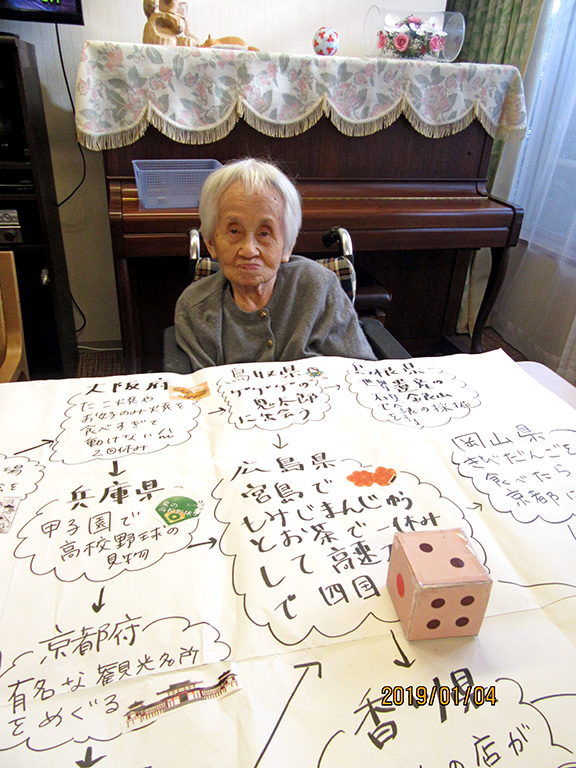 大阪府
たこ焼や
お好のみ焼を
食べすぎて
動けない
2回休み
鳥取県
ゲゲゲの
鬼太郎
に会う
広島県
宮島で
もみじまんじゅう
とお茶で一休み
して高速
で四国
岡山県
きびだんごを
食べたら
京都に
兵庫県
甲子園で
高校野球の
見物
京都府
有名な観光名所
をめぐる
香川県
の店が
2019/01/04